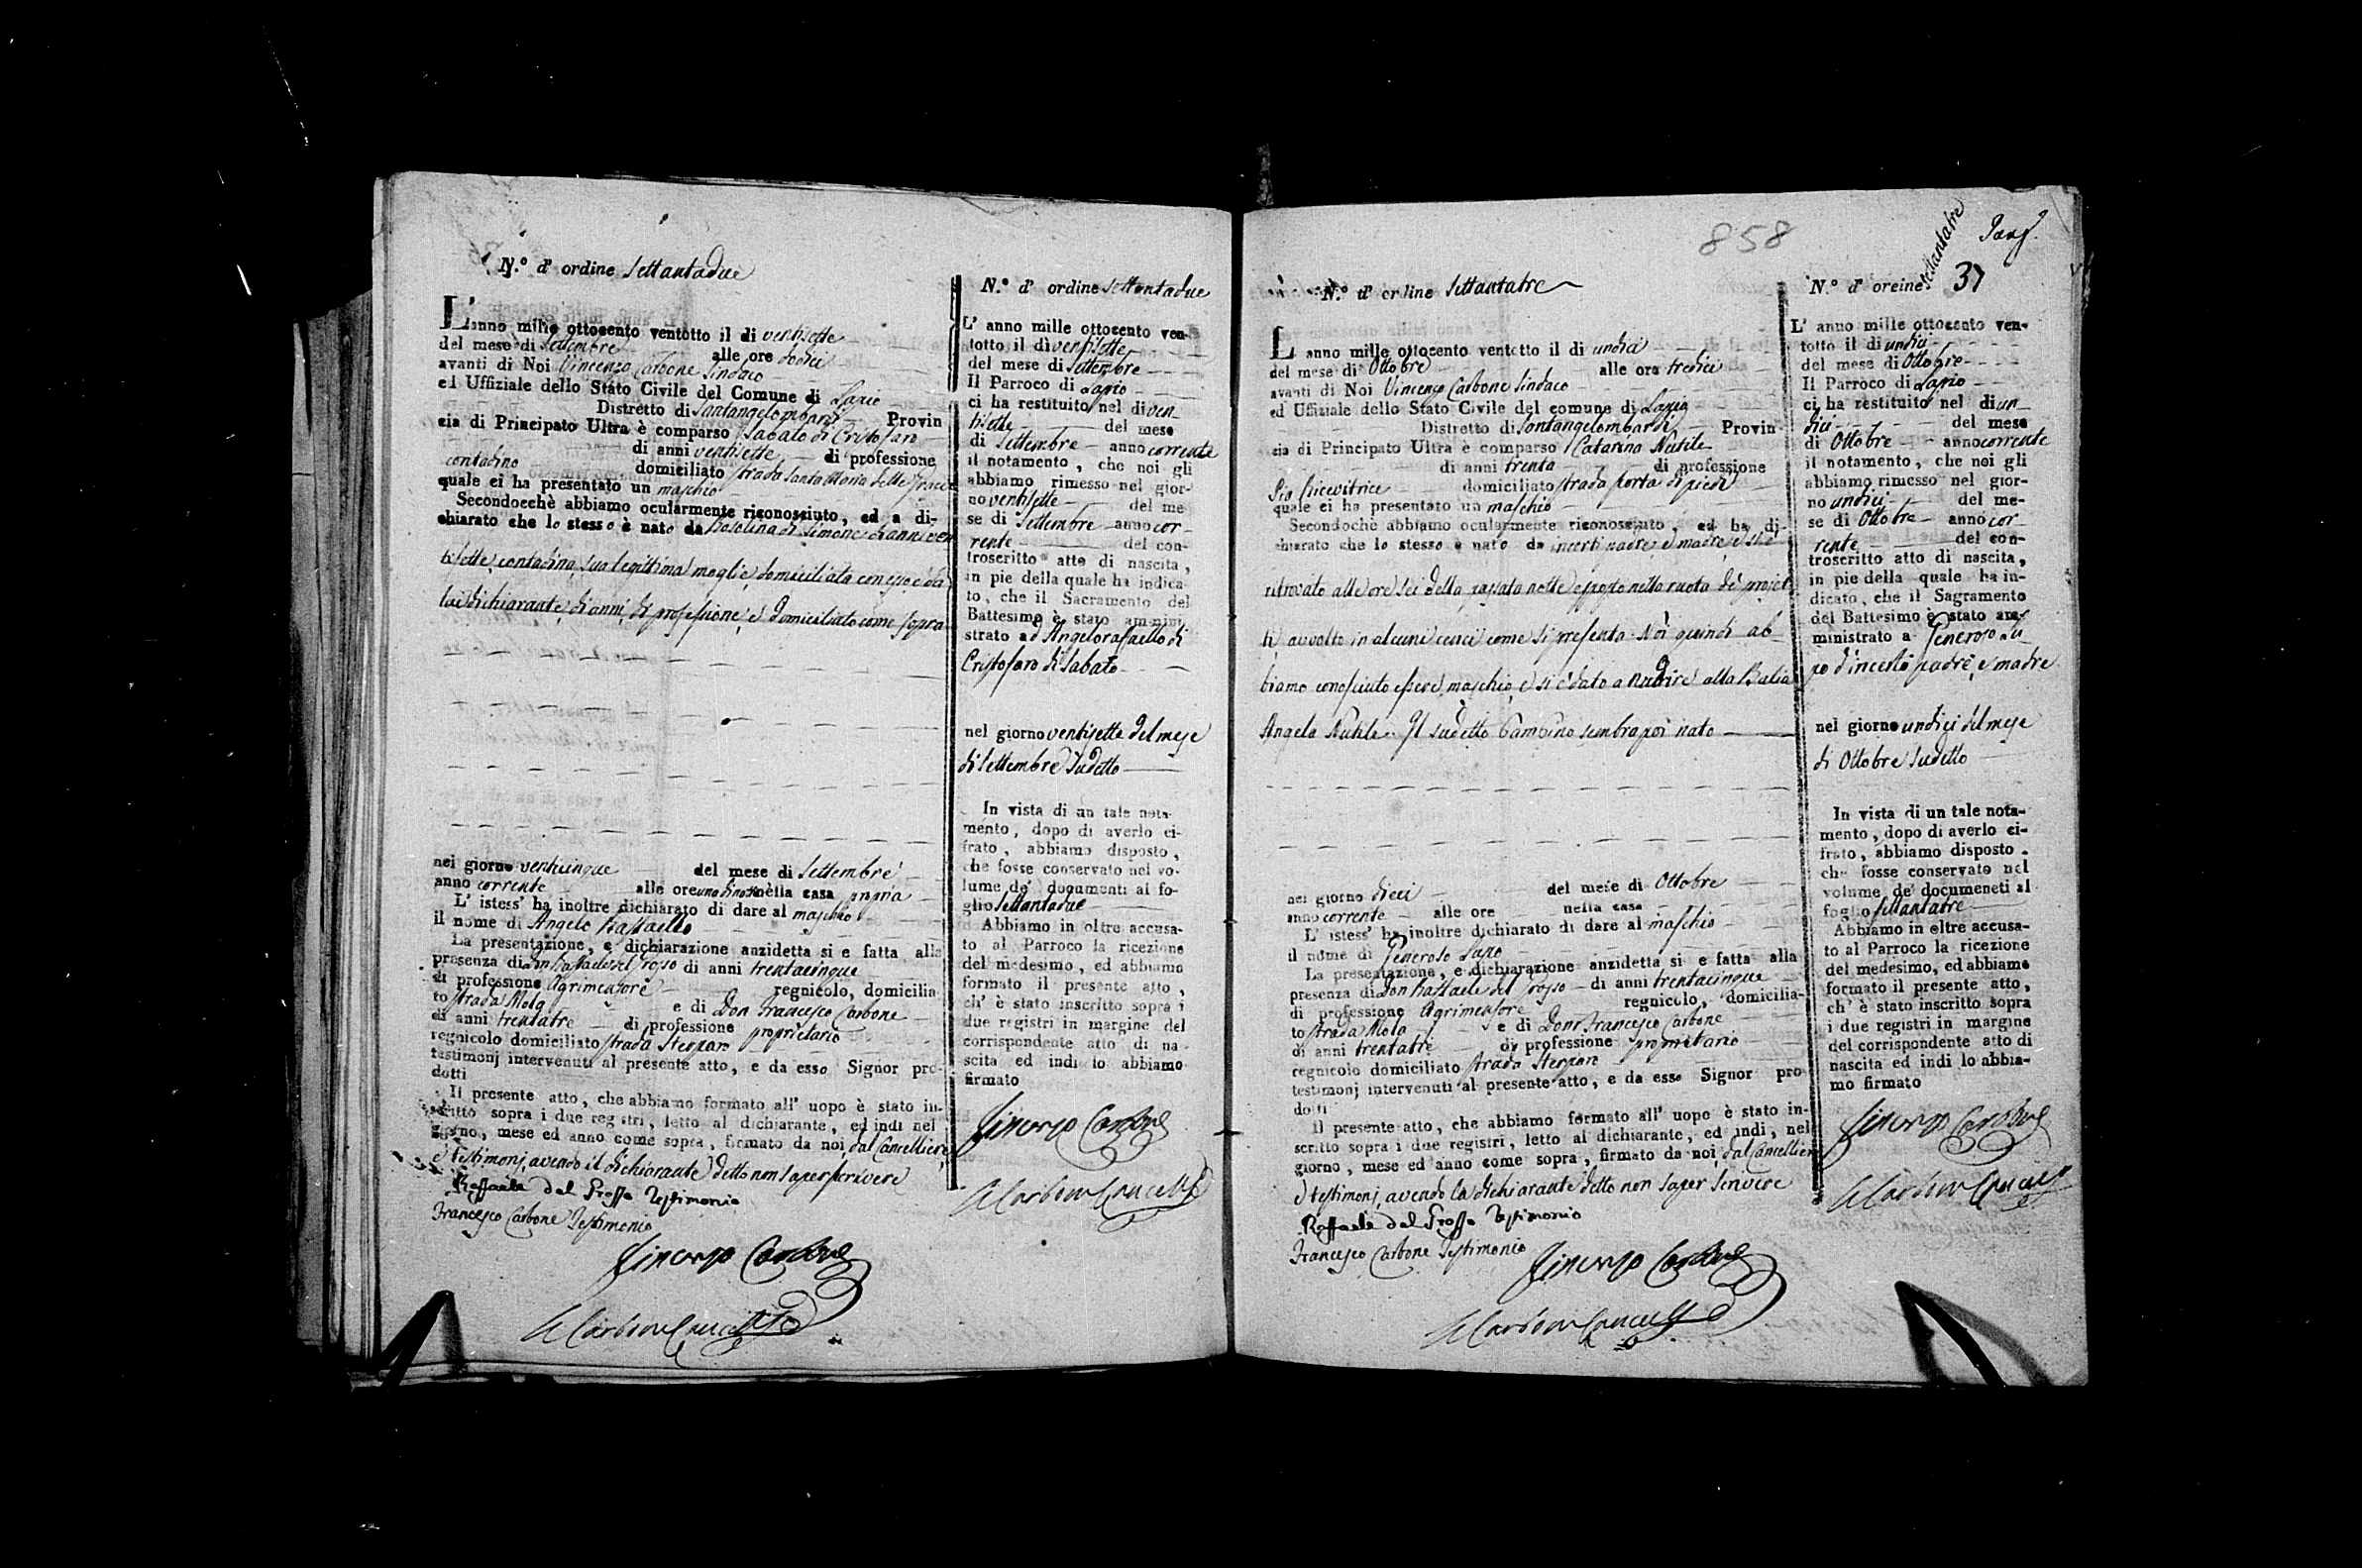 N.° d' ordine Settantadue
L' anno mille ottocento ventotto il di ventisette
del mese di Settembre alle ore dodici
avanti di Noi Vincenzo Carbone Sindaco
ed Uffiziale dello Stato Civile del Comune di Lapio
Distretto di Santangelombardi Provin
cia di Principato Ultra è comparso Sabato di Cristofaro
di anni ventisette di professione
contadino domiciliato strada Santa Maria delle Grazie
quale ci ha presentato un maschio
Secondocchè abbiamo ocularmente riconosciuto, ed a di-
chiarato che lo stesso è nato da Pasolina di Simone di anni ven
tisette, contadina, sua legittima moglie domiciliata con esso e da
lui dichiarante, di anni, di professione, e domiciliato come sopra
nel giorno venticinque del mese di Settembre
anno corrente alle ore una di notte nella casa propria
L' istess' ha inoltre dichiarato di dare al maschio
il nome di Angelo Raffaello
La presentazione, e dichiarazione anzidetta si e fatta alla
presenza di Don Raffaele del Grosso di anni trentacinque
di professione Agrimensore regnicolo, domicilia
to strada Mola e di Don Francesco Carbone
di anni trentatre di professione proprietario
regnicolo domiciliato strada Sterparo
testimonj intervenuti al presente atto, e da esso Signor pro-
dotti
Il presente atto, che abbiamo formato all' uopo è stato in-
scritto sopra i due registri, letto al dichiarante, ed indi nel
giorno, mese ed anno come sopra, firmato da noi, dal Cancelliere
e testimonj, avendo il dichiarante detto non saper scrivere
Raffaele del Grosso Testimonio
Francesco Carbone Testimonio
Vincenzo Carbone
Carbone Cancelliere
N.° d' ordine Settantadue
L' anno mille ottocento ven-
totto il di ventisette
del mese di Settembre
Il Parroco di Lapio
ci ha restituito nel di ven_
tisette del mese
di Settembre anno corrente
il notamento, che noi gli
abbiamo rimesso nel gior-
no ventisette del me
se di Settembre anno cor_
rente del con-
troscritto atto di nascita,
in pie della quale ha indica-
to, che il Sacramento del
Battesimo è stato ammini
strato ad Angeloraffaello di
Cristofaro di Sabato
nel giorno ventisette del mese
di Settembre sudetto
In vista di un tale nota-
mento, dopo di averlo ci-
frato, abbiamo disposto,
che fosse conservato nel vo-
lume de' documenti al fo-
glio Settantadue
Abbiamo in oltre accusa-
to al Parroco la ricezione
del medesimo, ed abbiamo
formato il presente atto,
ch' è stato inscritto sopra i
due registri in margine del
corrispondente atto di na-
scita ed indi lo abbiamo
firmato
Vincenzo Carbone
Carbone Cancelliere
858
settantatre
37
N.° d' ordine Settantatre
L' anno mille ottocento ventotto il di undici
del mese di Ottobre alle ore tredici
avanti di Noi Vincenzo Carbone Sindaco
ed Uffiziale dello Stato Civile del comune di Lapio
Distretto di Santangelombardi Provin
cia di Principato Ultra è comparso Catarina Nutile
di anni trenta di professione
Pia Ricevitrice domiciliato strada Porta di piedi
quale ci ha presentato un maschio
Secondochè abbiamo ocularmente riconosciuto, ed ha di-
chiarato che lo stesso è nato da incerti padre e madre, e si è
ritrovato alle ore sei della passata notte esposto nella ruota de' projet
ti avvolto in alcuni cenci come si presenta. Noi quindi ab
biamo conosciuto essere maschio, e si è dato a nudrire alla Balia
Angela Nutile. Il sudetto bambino sembra poi nato
nel giorno dieci del mese di Ottobre
anno corrente alle ore nella casa
L' istess' ha inoltre dichiarato di dare al maschio
il nome di Generoso Lupo
La presentazione, e dichiarazione anzidetta si e fatta alla
presenza di Don Raffaele del Grosso di anni trentacinque
di professione Agrimensore regnicolo, domicilia-
to strada Mola e di Don Francesco Carbone
di anni trentatre di professione proprietario
regnicolo domiciliato strada Sterparo
testimonj intervenuti al presente atto, e da esso Signor pro-
dotti
Il presente atto, che abbiamo formato all' uopo è stato in-
scritto sopra i due registri, letto al dichiarante, ed indi, nel
giorno, mese ed anno come sopra, firmato da noi, dal Cancelliere
e testimonj, avendo la dichiarante detto non saper scrivere
Raffaele del Grosso Testimonio
Francesco Carbone Testimonio
Vincenzo Carbone
Carbone Cancelliere
N.° d' oreine
L' anno mille ottocento ven-
totto il di undici
del mese di Ottobre
Il Parroco di Lapio
ci ha restituito nel di un_
dici del mese
di Ottobre anno corrente
il notamento, che noi gli
abbiamo rimesso nel gior-
no undici del me-
se di Ottobre anno cor_
rente del con-
troscritto atto di nascita,
in pie della quale ha in-
dicato, che il Sagramento
del Battesimo è stato am-
ministrato a Generoso Lu_
po d'incerti padre, e madre
nel giorno undici del mese
di Ottobre sudetto
In vista di un tale nota-
mento, dopo di averlo ci-
frato, abbiamo disposto.
che fosse conservato nel
volume de' documeneti al
foglio settantatre
Abbiamo in oltre accusa-
to al Parroco la ricezione
del medesimo, ed abbiamo
formato il presente atto,
ch' è stato inscritto sopra
i due registri in margine
del corrispondente atto di
nascita ed indi lo abbia-
mo firmato
Vincenzo Carbone
Carbone Cancelliere